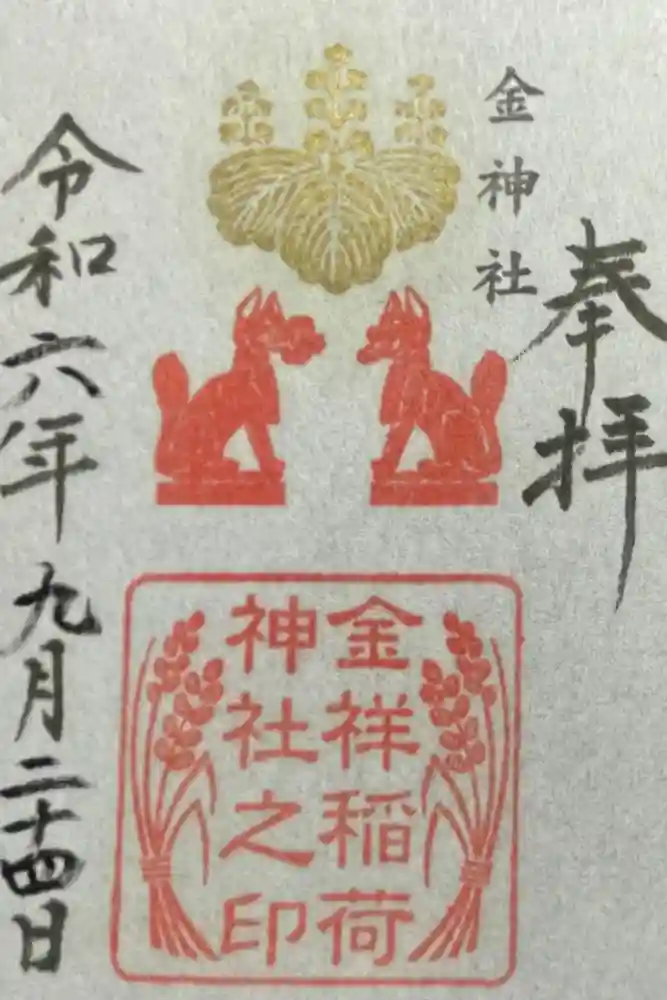 奉拝
金神社
金祥稲荷
神社之印
令和六年九月二十四日